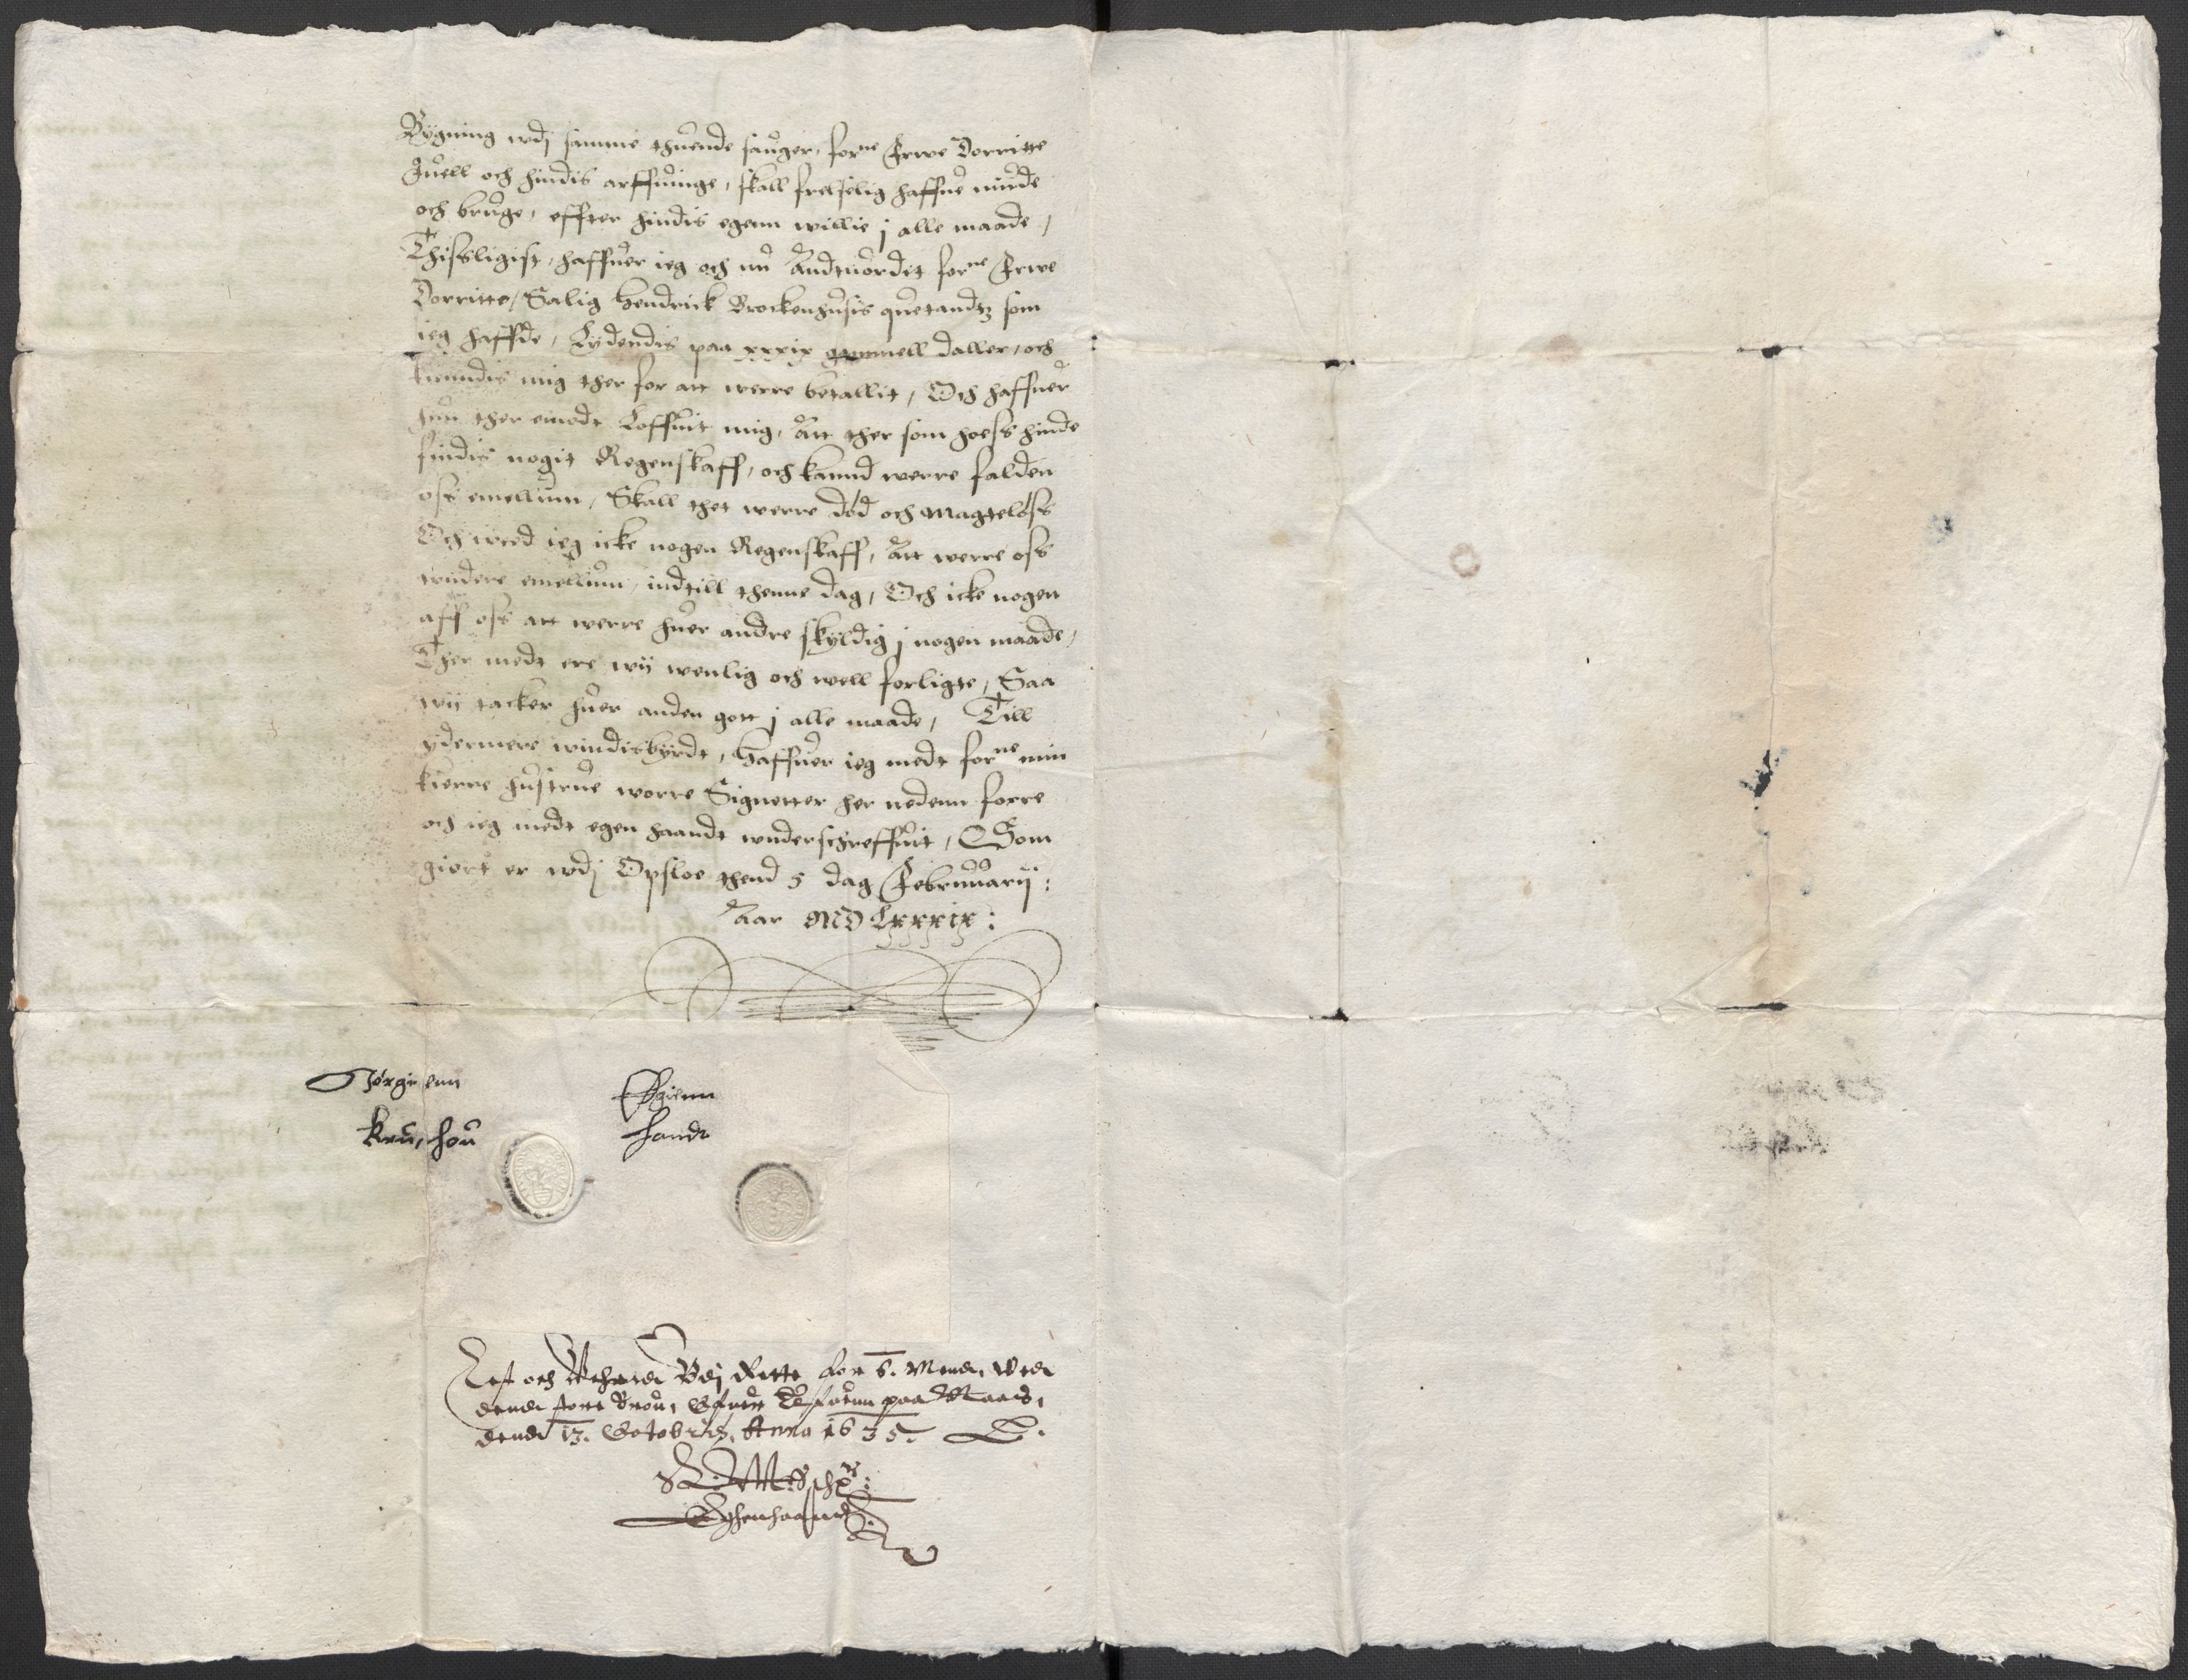 Bygning wdj samme thuende sauger, forne Frwe Dorritte
Juell och hindis arffuinge, skall frelselig haffue nŭde
och bruge, effter hindis egenn willie j alle maade,
Thissligist, haffuer ieg och nu Andtuordet forne Frwe
Dorritte, Salig Hendrick Brockenhusis quetandtz som
ieg haffde, Lydendis paa xxxix gammell daller, och
kiendis mig ther for att werre betallit, Och haffuer
hun ther emodt Loffuit mig, Att ther som hoess hinde
findis nogit Regenskaff, och kannd werre falden
oss emellum, Skall thet werre död och magtelöss
Och weed ieg icke nogen Regenskaff, Att werre oss
widere emellum, indtill thenne dag, Och icke nogen
aff oss att werre huer andre skyldig j nogen maade,
Ther medt ere wij wenlig och well forligte, Saa
wij tacker huer anden gott j alle maade, Till
ydermere windisbyrdt, Haffuer ieg medt forne min
kierre hustrue worre Signetter her nedenn forre
och ieg medt egen haandt wnderschreffuit, Som
giort er wdj Opsloe thend 5 dag Februarij:
Aar MDLxxxix:
Jörgienn Egienn
handt
Lest och Wdj Rette for 6. Mend,
paa
dend 13. Octobris, Anno 1635.
Egenhaand